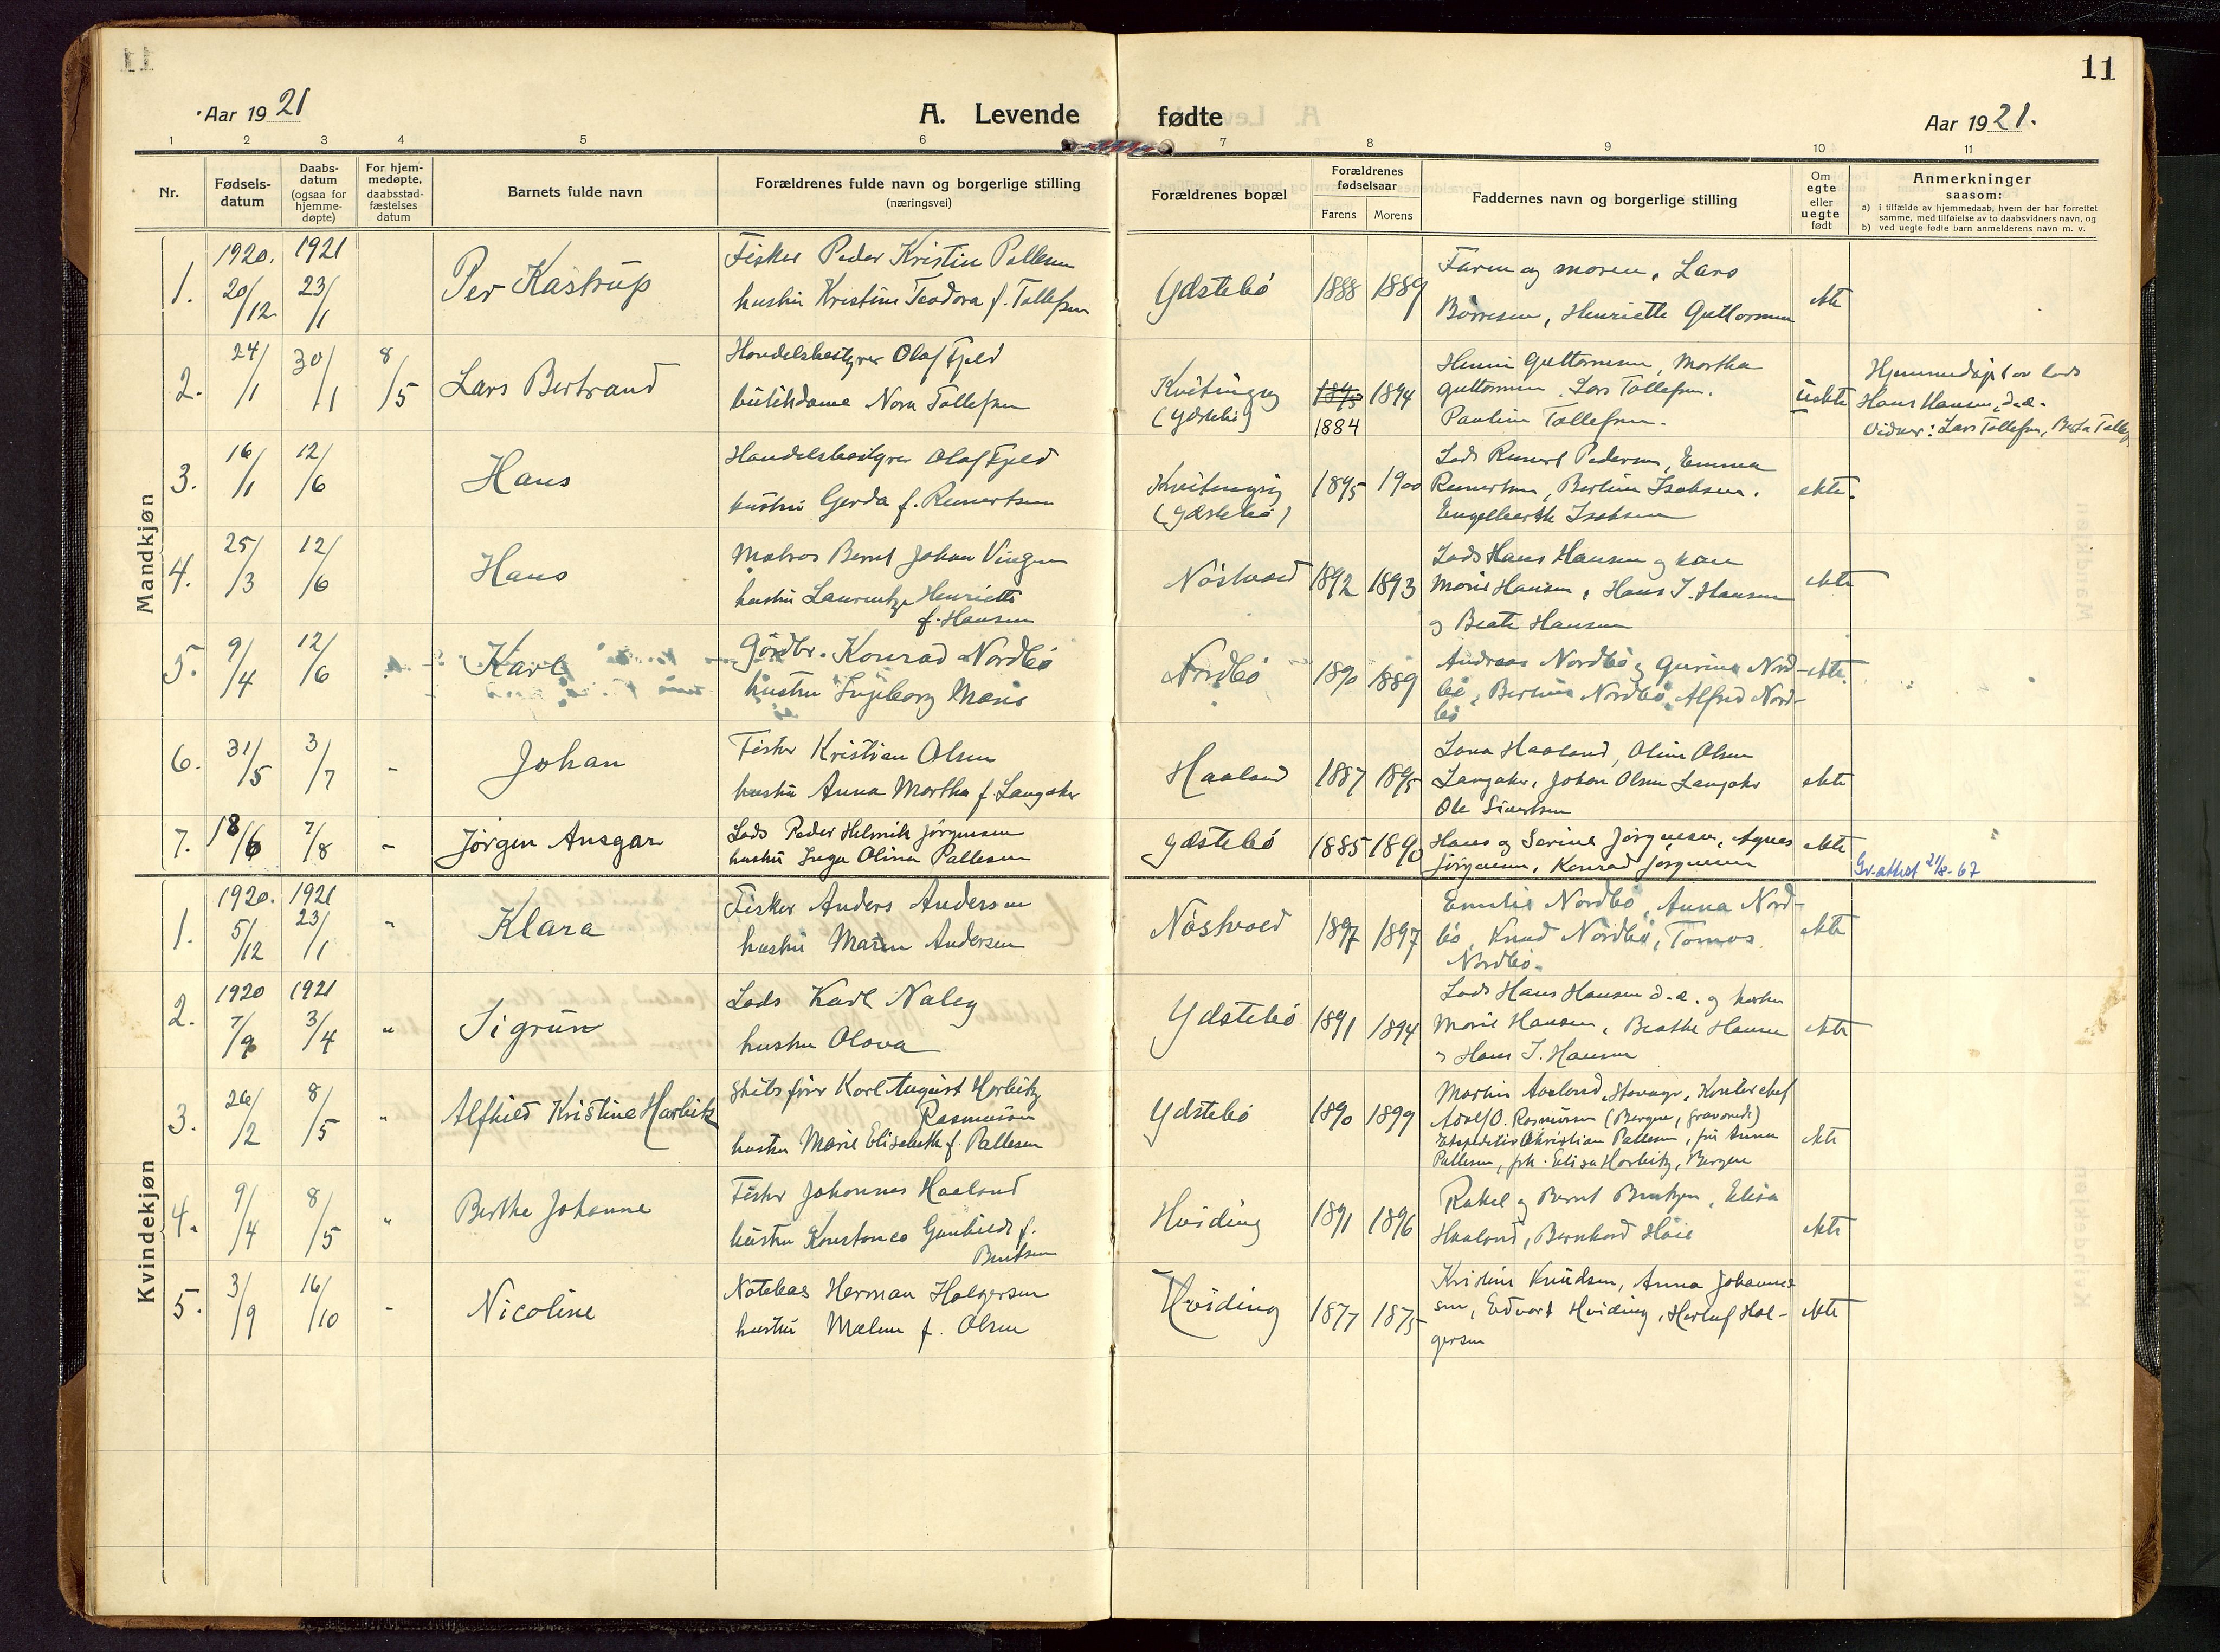 11
Aar 1921
A. Levende fødte
Aar 1921.
1 2 3 4 5 6 7 8 9 10 11
Nr.
Fødselsdatum
Daabsdatum (ogsaa for hjemmedøpte)
For hjemmedøpte, daabsstadfæstelses datum
Barnets fulde navn
Forældrenes fulde navn og borgerlige stilling (næringsvei)
Forældrenes bopæl
Forældrenes fødselsaar
Farens
Morens
Faddernes navn og borgerlige stilling
Om egte eller uegte født
Anmerkninger saasom:
a) i tilfælde av hjemmedaab, hvem der har forrettet samme, med tilføielse av to daabsvidners navn, og
b) ved uegte fødte barn anmelderens navn m. v.
Mandkjøn
1. 1920. 20/12 1921 23/1 Per Kastrup
Fisker Peder Kristin Pallesen
hustru Kristine Teodora f. Tollefsen
Ydstebø 1888 1889
Faren og moren, Lars
Børresen, Henriette Guttormsen
ekte
2. 24/1 30/1 8/5 Lars Bertrand
Handelsbestyrer Olaf Fjeld
butikdame Nora Tollefsen
Kvitingsøy (Ydstebø) 1895 1884 1894
Henni Guttormsen, Martha
Guttormsen. Lars Tollefsen.
Pauline Tollefsen.
uekte
Hjemmedøpt av lods
Hans Hansen, d.æ.
Vidner: Lars Tollefsen, Berta Tollef
3. 16/1 12/6 Hans
Handelsbestyrer Olaf Fjeld
hustru Gerda f. Reinertsen
Kvitingsøy (Ydstebø) 1895 1900
Lods Reinert Pedersen, Emma
Reinertsen, Bertine Isaksen.
Engelberth Isaksen
ekte.
4. 25/3 12/6 Hans
Matros Bernt Johan Vingen
hustru Laurentze Henriette
f. Hansen
Nøstvold 1892 1893
Lods Hans Hansen og kone
Marie Hansen, Hans J. Hansen
og Beate Hansen
ekte
5. 9/4 12/6 Karl
Gårdbr. Konrad Nordbø
hustru Ingeborg Marie
Nordbø 1890 1889
Andreas Nordbø og Gurine Nord-
bø, Bertine Nordbø, Alfred Nord-
bø
ekte.
6. 31/5 3/7 - Johan
Fisker Kristian Olsen
hustru Anna Martha f. Langaker
Haaland 1887 1895
Lava Haaland, Oline Olsen
Langaker, Johan Olsen Langaker
Ole Sivertsen
ekte
7. 18/6 7/8 - Jørgen Ansgar
Lods Peder Helmik Jørgensen
hustru Inga Olina Pallesen
Ydstebø 1885 1890
Hans og Serine Jørgensen, Agnes
Jørgensen, Konrad Jørgensen
ekte
Gv.attest 21/8-67
Kvindekjøn
1. 1920. 5/12 1921 23/1 " Klara
Fisker Anders Andersen
hustru Maren Andersen
Nøstvold 1897 1897
Emilie Nordbø, Anna Nord-
bø, Knud Nordbø, Tomas
Nordbø.
ekte
2. 1920 7/9 1921 3/4 " Sigrun
Lods Karl Naley
hustru Olava
Ydstebø 1891 1894
Lods Hans Hansen d.æ. og hustru
Marie Hansen, Beathe Hansen
og Hans J. Hansen
ekte
3. 26/2 8/5 " Alfhild Kristine Harbitz
Skibsfører Karl August Harbitz
Rasmussen
hustru Marie Elisabeth f. Pallesen
Ydstebø 1890 1899
Martin Aaland, Stavager, Kontorchef
Adolf O. Rasmussen (Bergen,
Ekspeditør Christian Pallesen, fru Anna
Pallesen, frk. Elisa Harbitz, Bergen
ekte
4. 9/4 8/5 " Berthe Johanne
Fisker Johannes Haaland
hustru Konstance Gunhilde f.
Bentsen
Hviding 1891 1896
Rakel og Bernt Bentzen, Elisa
Haaland, Bernhard Høie
ekte
5. 3/9 16/10 - Nicoline
Notebas Herman Holgersen
hustru Malene f. Olsen
Hviding 1877 1875
Kristine Knudsen, Anna Johannes-
sen, Edvart Hviding, Herluf Hol-
gersen
ekte